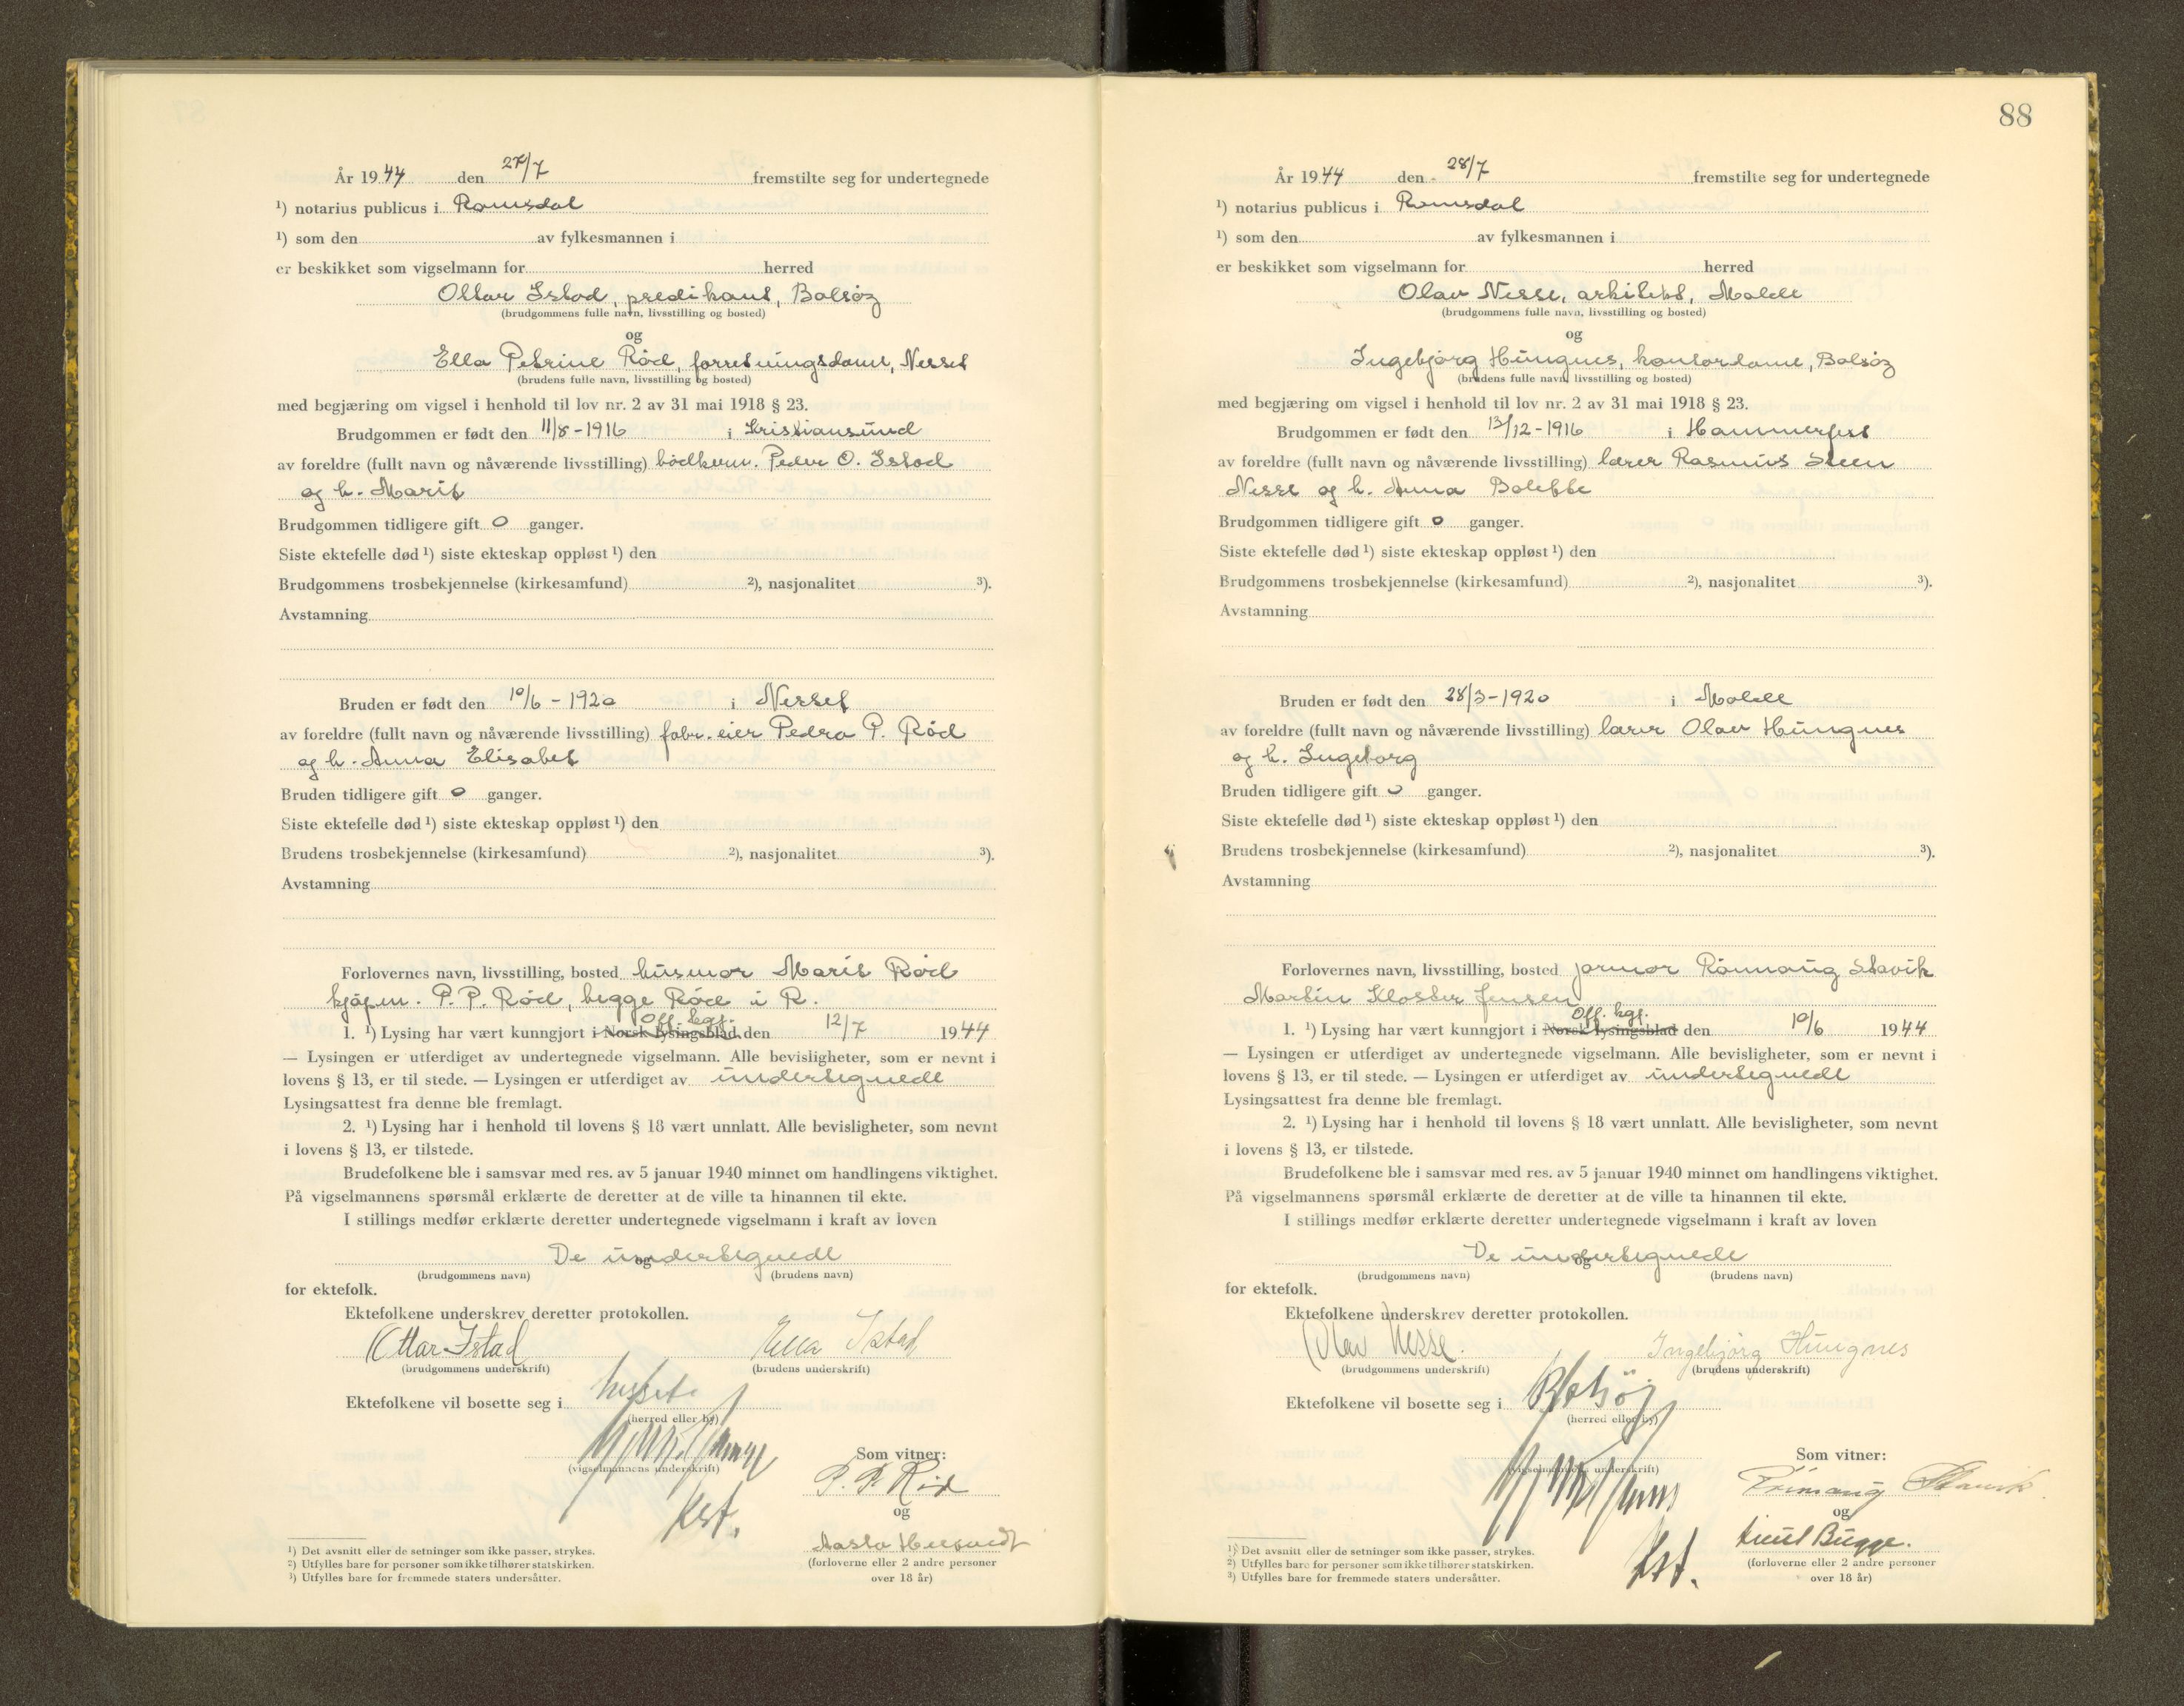 År 1944 den 27/7 fremstilte seg for undertegnede
¹) notarius publicus i Romsdal
¹) som den av fylkesmannen i
er beskikket som vigselmann for herred
Ottar Istad, predikant, Bolsøy
(brudgommens fulle navn, livsstilling og bosted)
og
Ella Petrine Rød, forretningsdame, Nesset
(brudens fulle navn, livsstilling og bosted)
med begjæring om vigsel i henhold til lov nr. 2 av 31 mai 1918 § 23.
Brudgommen er født den 11/8-1916 i Kristiansund
av foreldre (fullt navn og nåværende livsstilling) Peder O. Istad
og h. Marit
Brudgommen tidligere gift 0 ganger.
Siste ektefelle død ¹) siste ekteskap oppløst ¹) den
Brudgommens trosbekjennelse (kirkesamfund) ²), nasjonalitet ³).
Avstamning
Bruden er født den 10/6-1920 i Nesset
av foreldre (fullt navn og nåværende livsstilling) fabr. eier Pedro P. Rød
og h. Anna Elisabet
Bruden tidligere gift 0 ganger.
Siste ektefelle død ¹) siste ekteskap oppløst ¹) den
Brudens trosbekjennelse (kirkesamfund) ²), nasjonalitet ³).
Avstamning
Forlovernes navn, livsstilling, bosted husmor Marit Rød
kjøpm. P. P. Rød, begge Rød i R.
Off. kgj.
1. ¹) Lysing har vært kunngjort i Norsk lysingsblad den 12/7 1944
— Lysingen er utferdiget av undertegnede vigselmann. Alle bevisligheter, som er nevnt i
lovens § 13, er til stede. — Lysingen er utferdiget av undertegnede
Lysingsattest fra denne ble fremlagt.
2. ¹) Lysing har i henhold til lovens § 18 vært unnlatt. Alle bevisligheter, som nevnt
i lovens § 13, er tilstede.
Brudefolkene ble i samsvar med res. av 5 januar 1940 minnet om handlingens viktighet.
På vigselmannens spørsmål erklærte de deretter at de ville ta hinannen til ekte.
I stillings medfør erklærte deretter undertegnede vigselmann i kraft av loven
De undertegnede
og
(brudgommens navn) (brudens navn)
for ektefolk.
Ektefolkene underskrev deretter protokollen.
Ottar Istad Ella Istad
(brudgommens underskrift) (brudens underskrift)
Ektefolkene vil bosette seg i
(herred eller by)
(vigselmannens underskrift)
Som vitner:
P. P. Rød
kst.
og
Aasta
(forloverne eller 2 andre personer
over 18 år)
¹) Det avsnitt eller de setninger som ikke passer, strykes.
²) Utfylles bare for personer som ikke tilhører statskirken.
³) Utfylles bare for fremmede staters undersåtter.
88
År 1944 den 28/7 fremstilte seg for undertegnede
¹) notarius publicus i Romsdal
¹) som den av fylkesmannen i
er beskikket som vigselmann for herred
Olav Nesse, arkitekt, Molde
(brudgommens fulle navn, livsstilling og bosted)
og
Ingebjørg Hungnes, kontordame, Bolsøy
(brudens fulle navn, livsstilling og bosted)
med begjæring om vigsel i henhold til lov nr. 2 av 31 mai 1918 § 23.
Brudgommen er født den 13/12-1916 i Hammerfest
av foreldre (fullt navn og nåværende livsstilling) lærer Rasmus Steen
Nesse og h. Anna Bolette
Brudgommen tidligere gift 0 ganger.
Siste ektefelle død ¹) siste ekteskap oppløst ¹) den
Brudgommens trosbekjennelse (kirkesamfund) ²), nasjonalitet ³).
Avstamning
Bruden er født den 28/3-1920 i Molde
av foreldre (fullt navn og nåværende livsstilling) lærer Olav Hungnes
og h. Ingeborg
Bruden tidligere gift 0 ganger.
Siste ektefelle død ¹) siste ekteskap oppløst ¹) den
Brudens trosbekjennelse (kirkesamfund) ²), nasjonalitet ³).
Avstamning
Forlovernes navn, livsstilling, bosted jormor Rønnaug Stavik
Martin Kloster Jensen
Off. kgj.
1. ¹) Lysing har vært kunngjort i Norsk lysingsblad den 10/6 1944
— Lysingen er utferdiget av undertegnede vigselmann. Alle bevisligheter, som er nevnt i
lovens § 13, er til stede. — Lysingen er utferdiget av undertegnede
Lysingsattest fra denne ble fremlagt.
2. ¹) Lysing har i henhold til lovens § 18 vært unnlatt. Alle bevisligheter, som nevnt
i lovens § 13, er tilstede.
Brudefolkene ble i samsvar med res. av 5 januar 1940 minnet om handlingens viktighet.
På vigselmannens spørsmål erklærte de deretter at de ville ta hinannen til ekte.
I stillings medfør erklærte deretter undertegnede vigselmann i kraft av loven
De undertegnede
og
(brudgommens navn) (brudens navn)
for ektefolk.
Ektefolkene underskrev deretter protokollen.
Olav Nesse. Ingebjørg Hungnes
(brudgommens underskrift) (brudens underskrift)
Ektefolkene vil bosette seg i Bolsøy
(herred eller by)
(vigselmannens underskrift)
Som vitner:
Rønnaug Stavik
kst.
og
Bugge.
(forloverne eller 2 andre personer
over 18 år)
¹) Det avsnitt eller de setninger som ikke passer, strykes.
²) Utfylles bare for personer som ikke tilhører statskirken.
³) Utfylles bare for fremmede staters undersåtter.